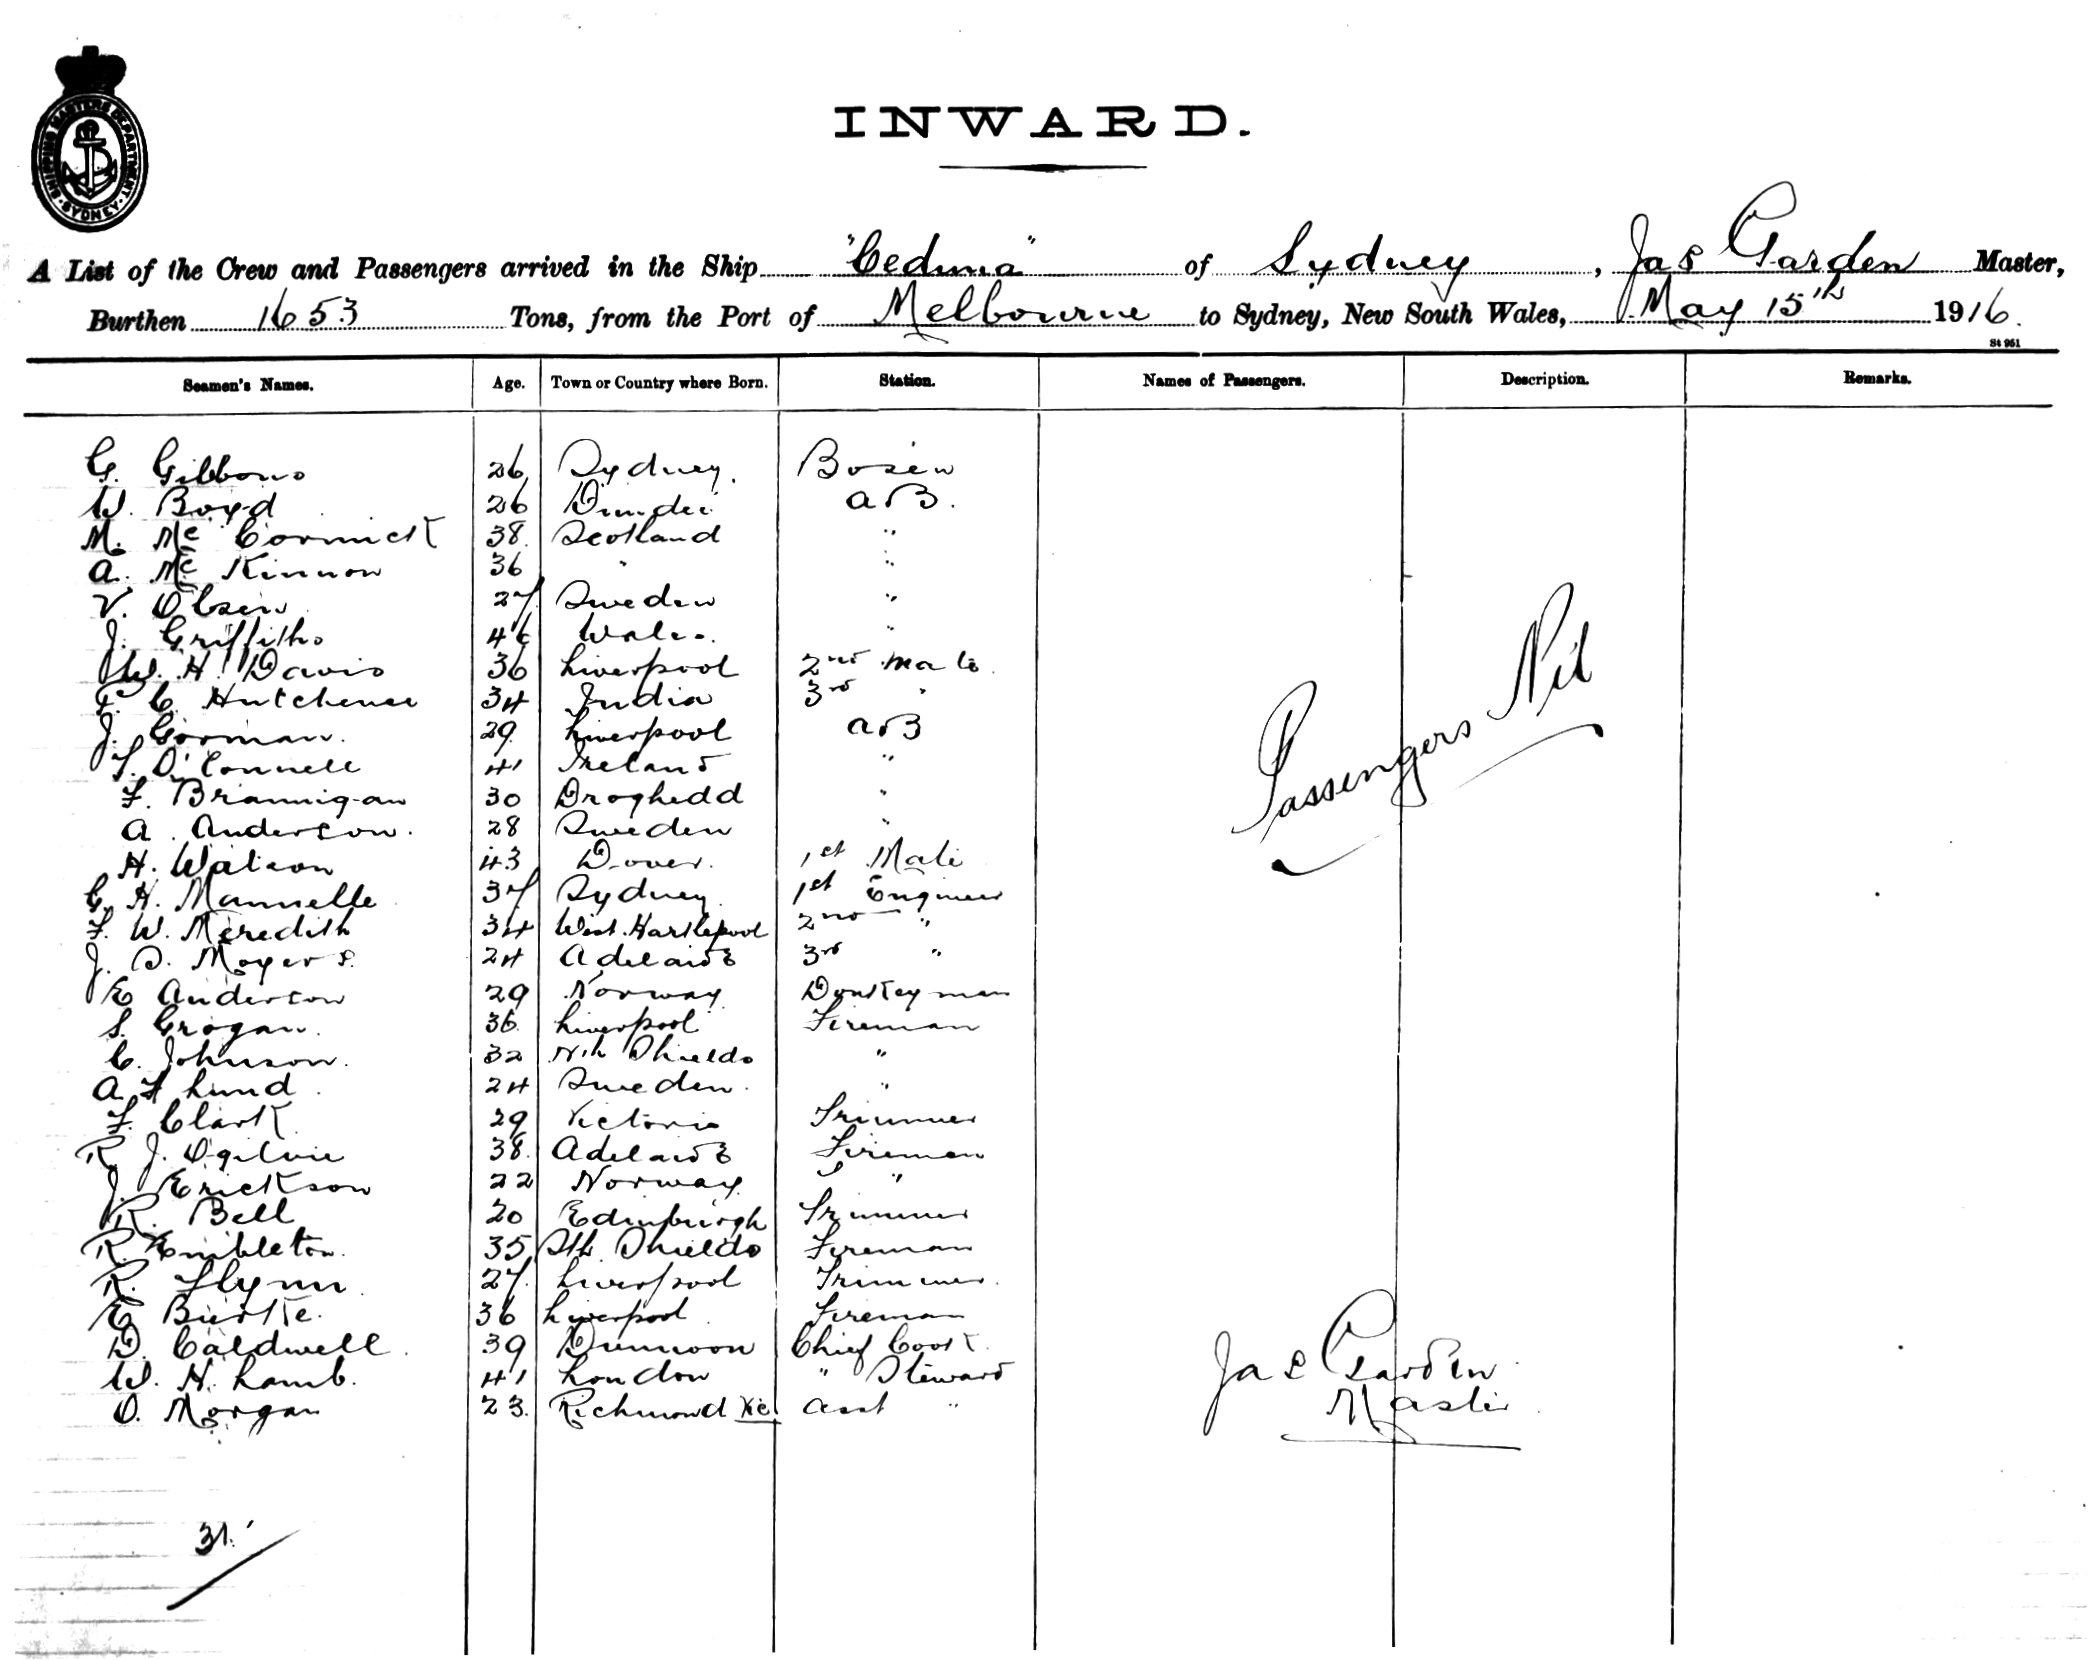 SHIPPING MASTERS DEPARTMENT. SYDNEY
INWARD.
A List of the Crew and Passengers arrived in the Ship "Ceduna" of Sydney, Jas Garden Master,
Burthen 1653 Tons, from the Port of Melbourne to Sydney, New South Wales, May 15th 1916.
St 951
Seamen's Names. Age. Town or Country where Born. Station. Names of Passengers. Description. Remarks.
G. Gibbons 26 Sydney. Bosen
W. Boyd 26 Dundee AB.
M. McCormick 38. Scotland "
A. McKinnon 36 " "
V. Olsen 27 Sweden "
J. Griffiths 46 Wales. "
W. H. Davis 36 Liverpool 2nd Mate.
F. C. Hutchence 34 India 3rd "
J. Gorman. 29 Liverpool AB
T. O'Connell 41 Ireland "
F. Brannigan 30 Droghedd "
A. Anderson. 28 Sweden "
H. Watson 43 Dover. 1st Mate
G. H. Mannelle 37 Sydney 1st Engineer
F. W. Meredith 34 West Hartlepool 2nd "
J. D. Moyers. 24 Adelaide 3rd "
E Anderson 29 Norway Donkeyman
S. Grogan. 36 Liverpool Fireman
C. Johnson. 32 Nth Shields "
A. F Lund 24 Sweden. "
F. Clark 29 Victoria Trimmer
R. J. Ogilvie 38. Adelaide Fireman
J. Erickson 22 Norway "
R. Bell 20 Edinburgh Trimmer
R. Embleton. 35 Sth. Shields Fireman
R. Flynn 27. Liverpool Trimmer.
E Burke. 36 Liverpool Fireman
D. Caldwell. 39 Dunnoon Chief Cook
W. H. Lamb. 41 London " Steward
O. Morgan 23. Richmond Vic Asst "
Passengers Nil
Jas Garden
Master
31.